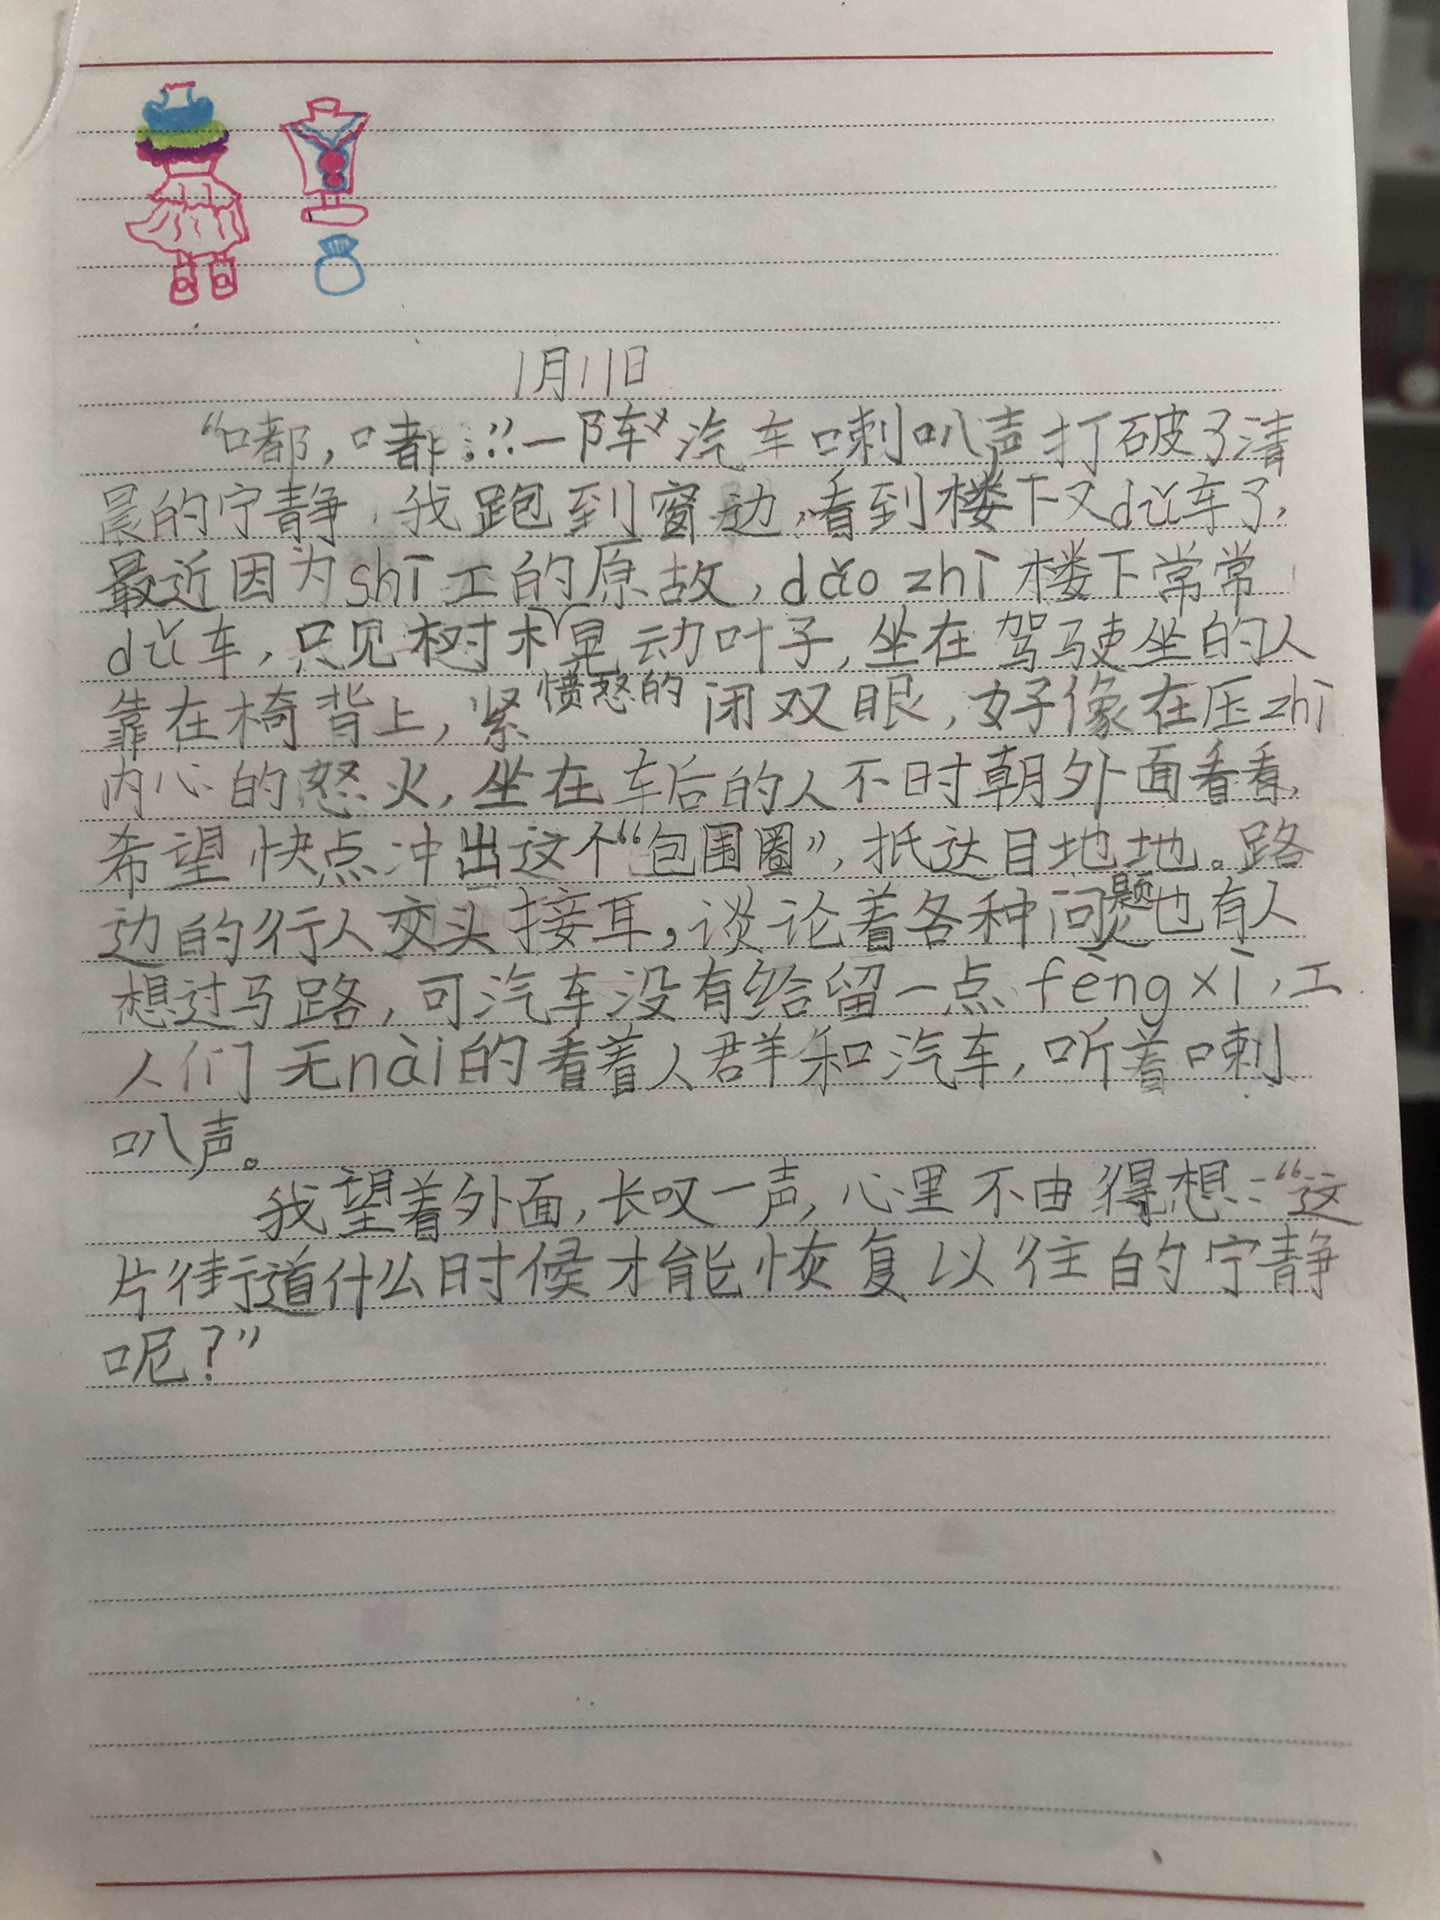 1月11日
“嘟，嘟……”一阵汽车喇叭声打破了清
晨的宁静，我跑到窗边，看到楼下又dǔ车了，
最近因为shī工的原故，dǎo zhì楼下常常
dǔ车，只见树木晃动叶子，坐在驾驶坐的人
靠在椅背上，愤怒的紧闭双眼，好像在压zhì
内心的怒火，坐在车后的人不时朝外面看看，
希望快点冲出这个“包围圈”，抵达目地地。路
边的行人交头接耳，谈论着各种问题也有人
想过马路，可汽车没有给留一点fèng xì，工
人们无nài的看着人群和汽车，听着喇
叭声。
我望着外面，长叹一声，心里不由得想：“这
片街道什么时候才能恢复以往的宁静
呢？”